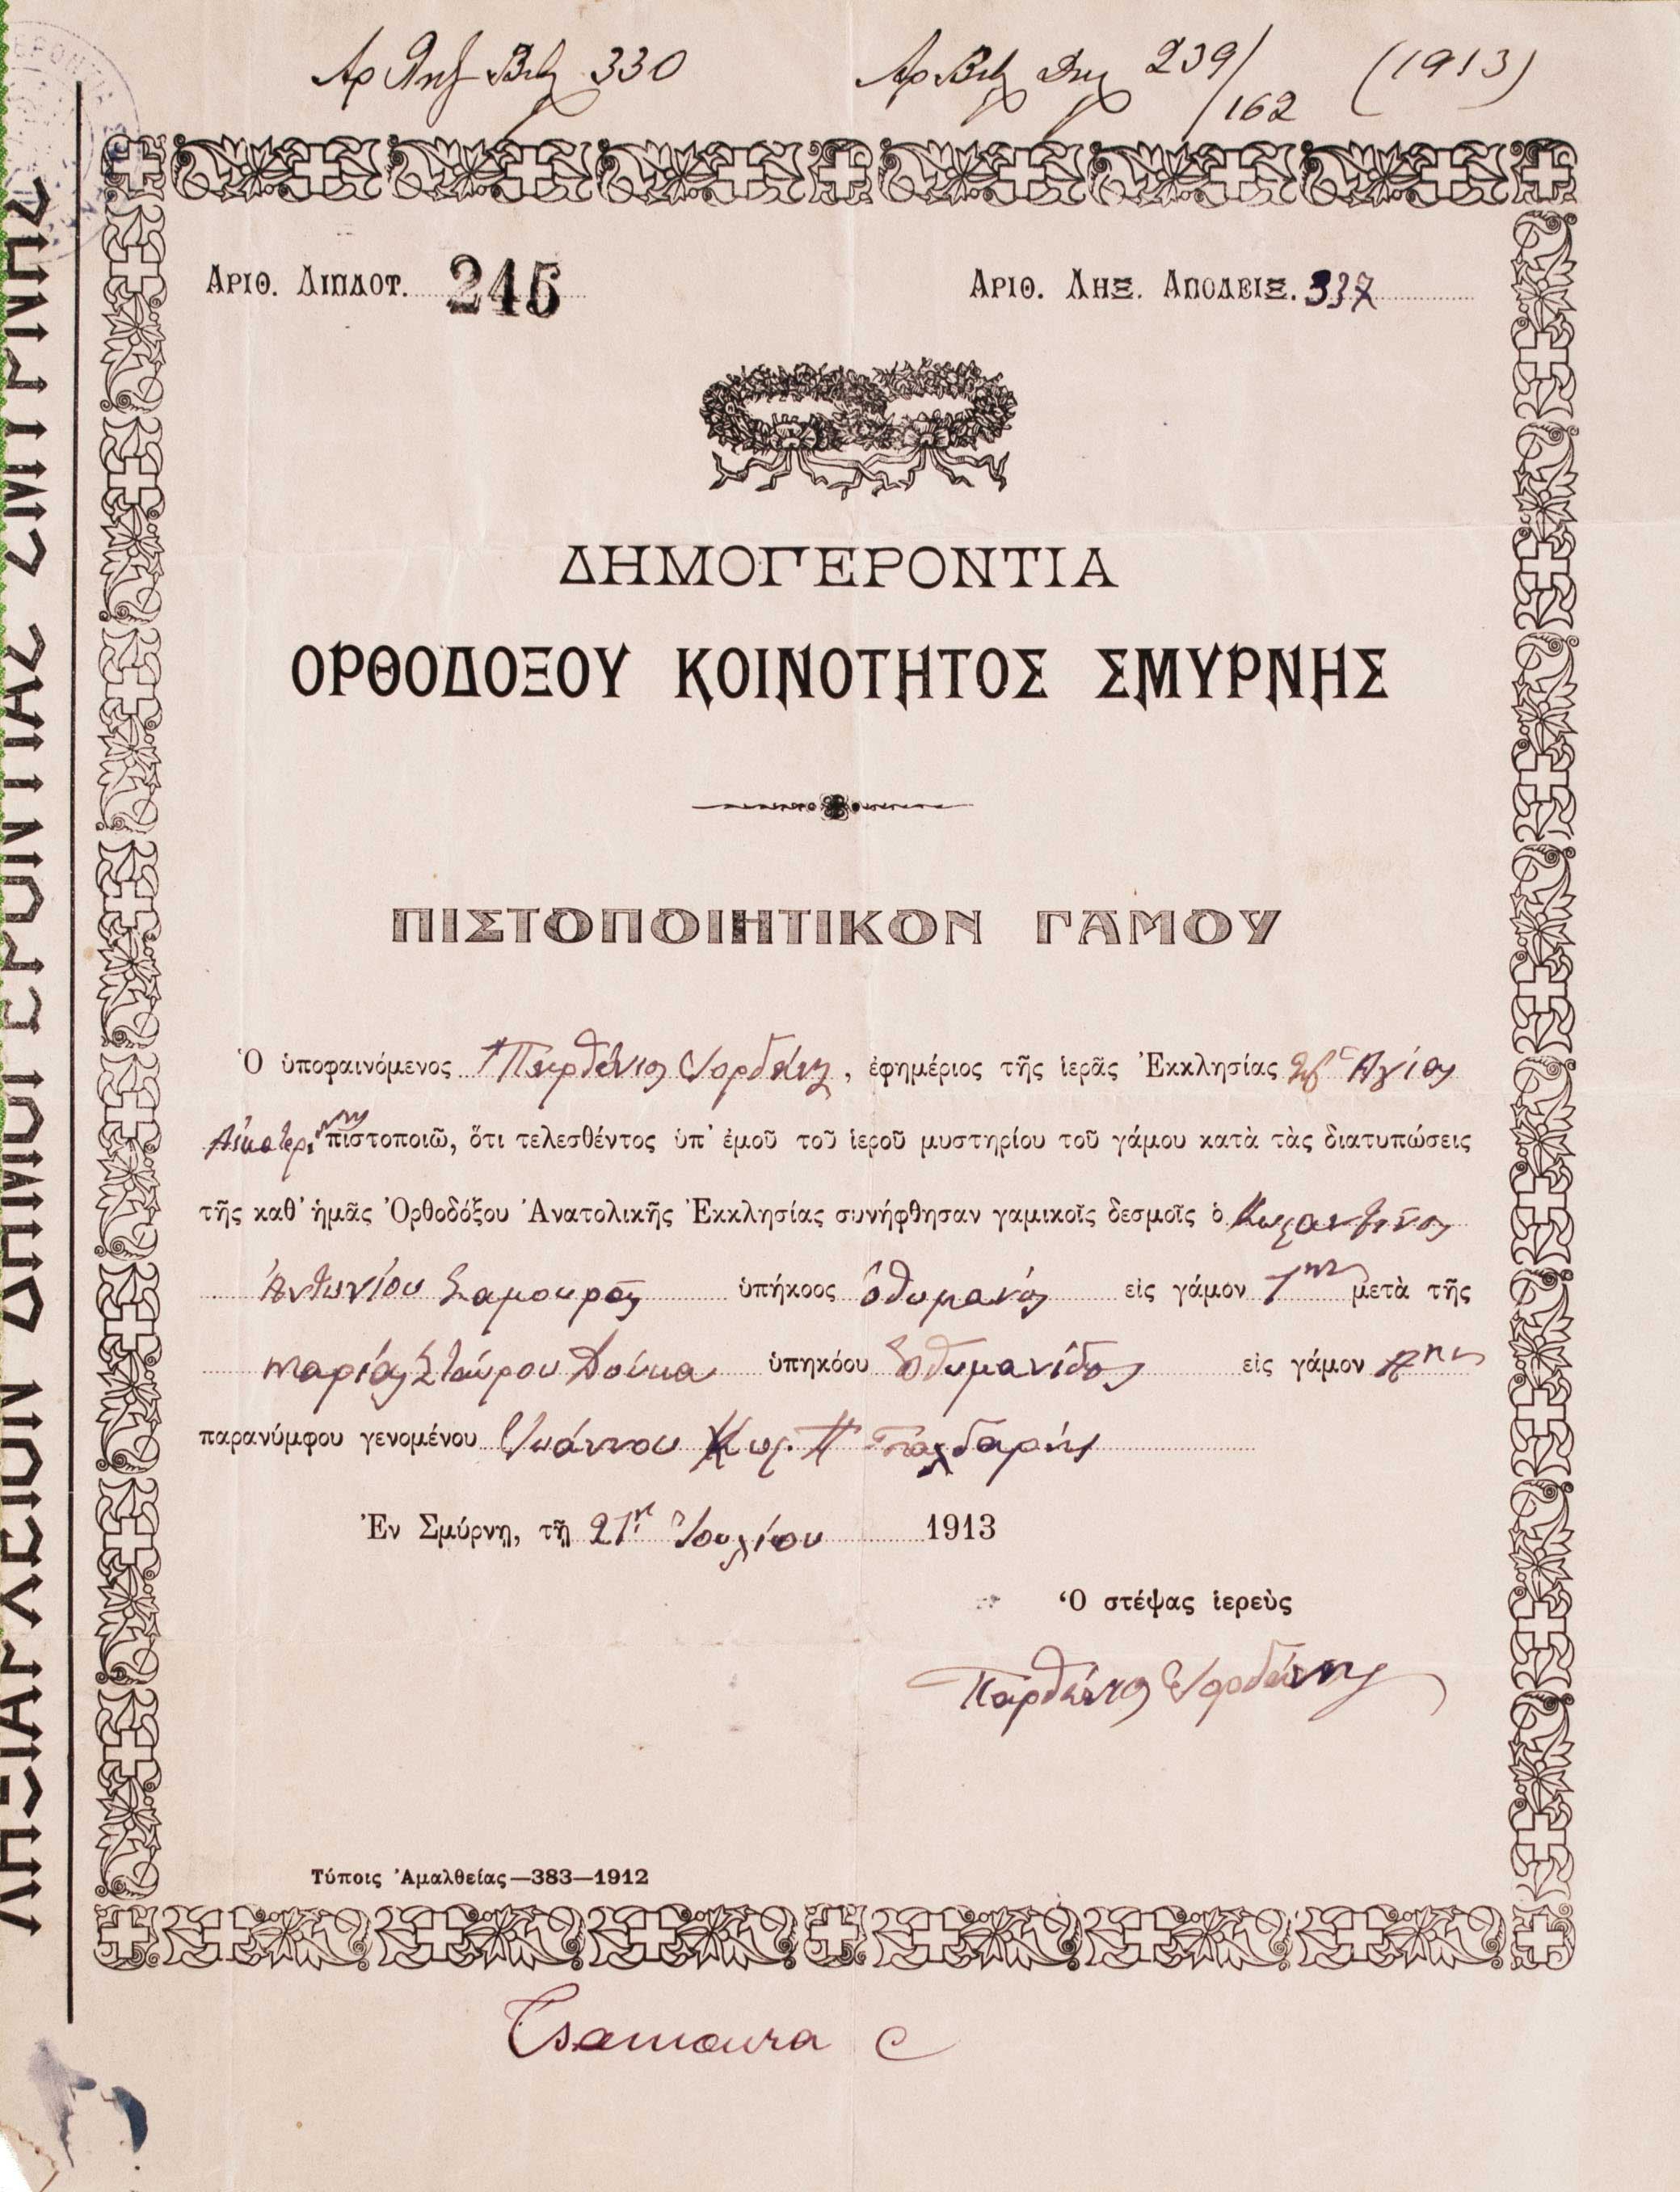 Αρ Ληξ Βιβ 330 Αρ Βιβ 239/162 (1913)
ΑΡΙΘ. ΔΙΠΛΟΤ. 245 ΑΡΙΘ. ΛΗΞ. ΑΠΟΔΕΙΞ. 337
ΔΗΜΟΓΕΡΟΝΤΙΑ
ΟΡΘΟΔΟΞΟΥ ΚΟΙΝΟΤΗΤΟΣ ΣΜΥΡΝΗΣ
ΠΙΣΤΟΠΟΙΗΤΙΚΟΝ ΓΑΜΟΥ
Ὁ ὑποφαινόμενος Παρθένιος Ἰορδάνης, ἐφημέριος τῆς ἱερᾶς Ἐκκλησίας Ἁγίας
Αἰκατερίνης πιστοποιῶ, ὅτι τελεσθέντος ὑπ' ἐμοῦ τοῦ ἱεροῦ μυστηρίου τοῦ γάμου κατὰ τὰς διατυπώσεις
τῆς καθ' ἡμᾶς Ὀρθοδόξου Ἀνατολικῆς Ἐκκλησίας συνήφθησαν γαμικοῖς δεσμοῖς ὁ Κωσταντῖνος
Ἀντωνίου Σαμουρᾶς ὑπήκοος ὀθωμανός εἰς γάμον 1ον μετὰ τῆς
Μαρίας Σταύρου Δούκα ὑπηκόου Ὀθωμανίδος εἰς γάμον
παρανύμφου γενομένου Ἰωάννου Κωσ.
Ἐν Σμύρνῃ, τῇ 21ῃ Ἰουλίου 1913
Ὁ στέψας ἱερεὺς
Παρθένιος Ἰορδάνης
Τύποις Ἀμαλθείας—383—1912
Tsamoura C
ΛΗΞΙΑΡΧΕΙΟΝ ΔΗΜΟΓΕΡΟΝΤΙΑΣ ΣΜΥΡΝΗΣ